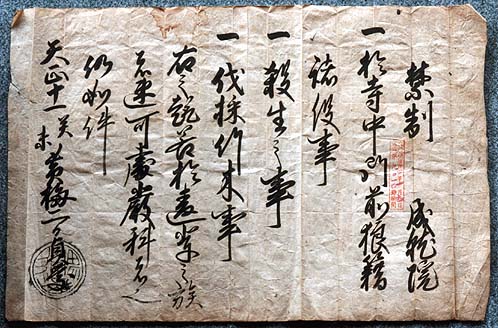 禁制 成就院
一 於寺中門前狼藉
諸役事
一 殺生之事
一 伐採竹木事
右之趣若於違犯之族
者速可處嚴科者也
仍如件
天正十一癸未 黄梅